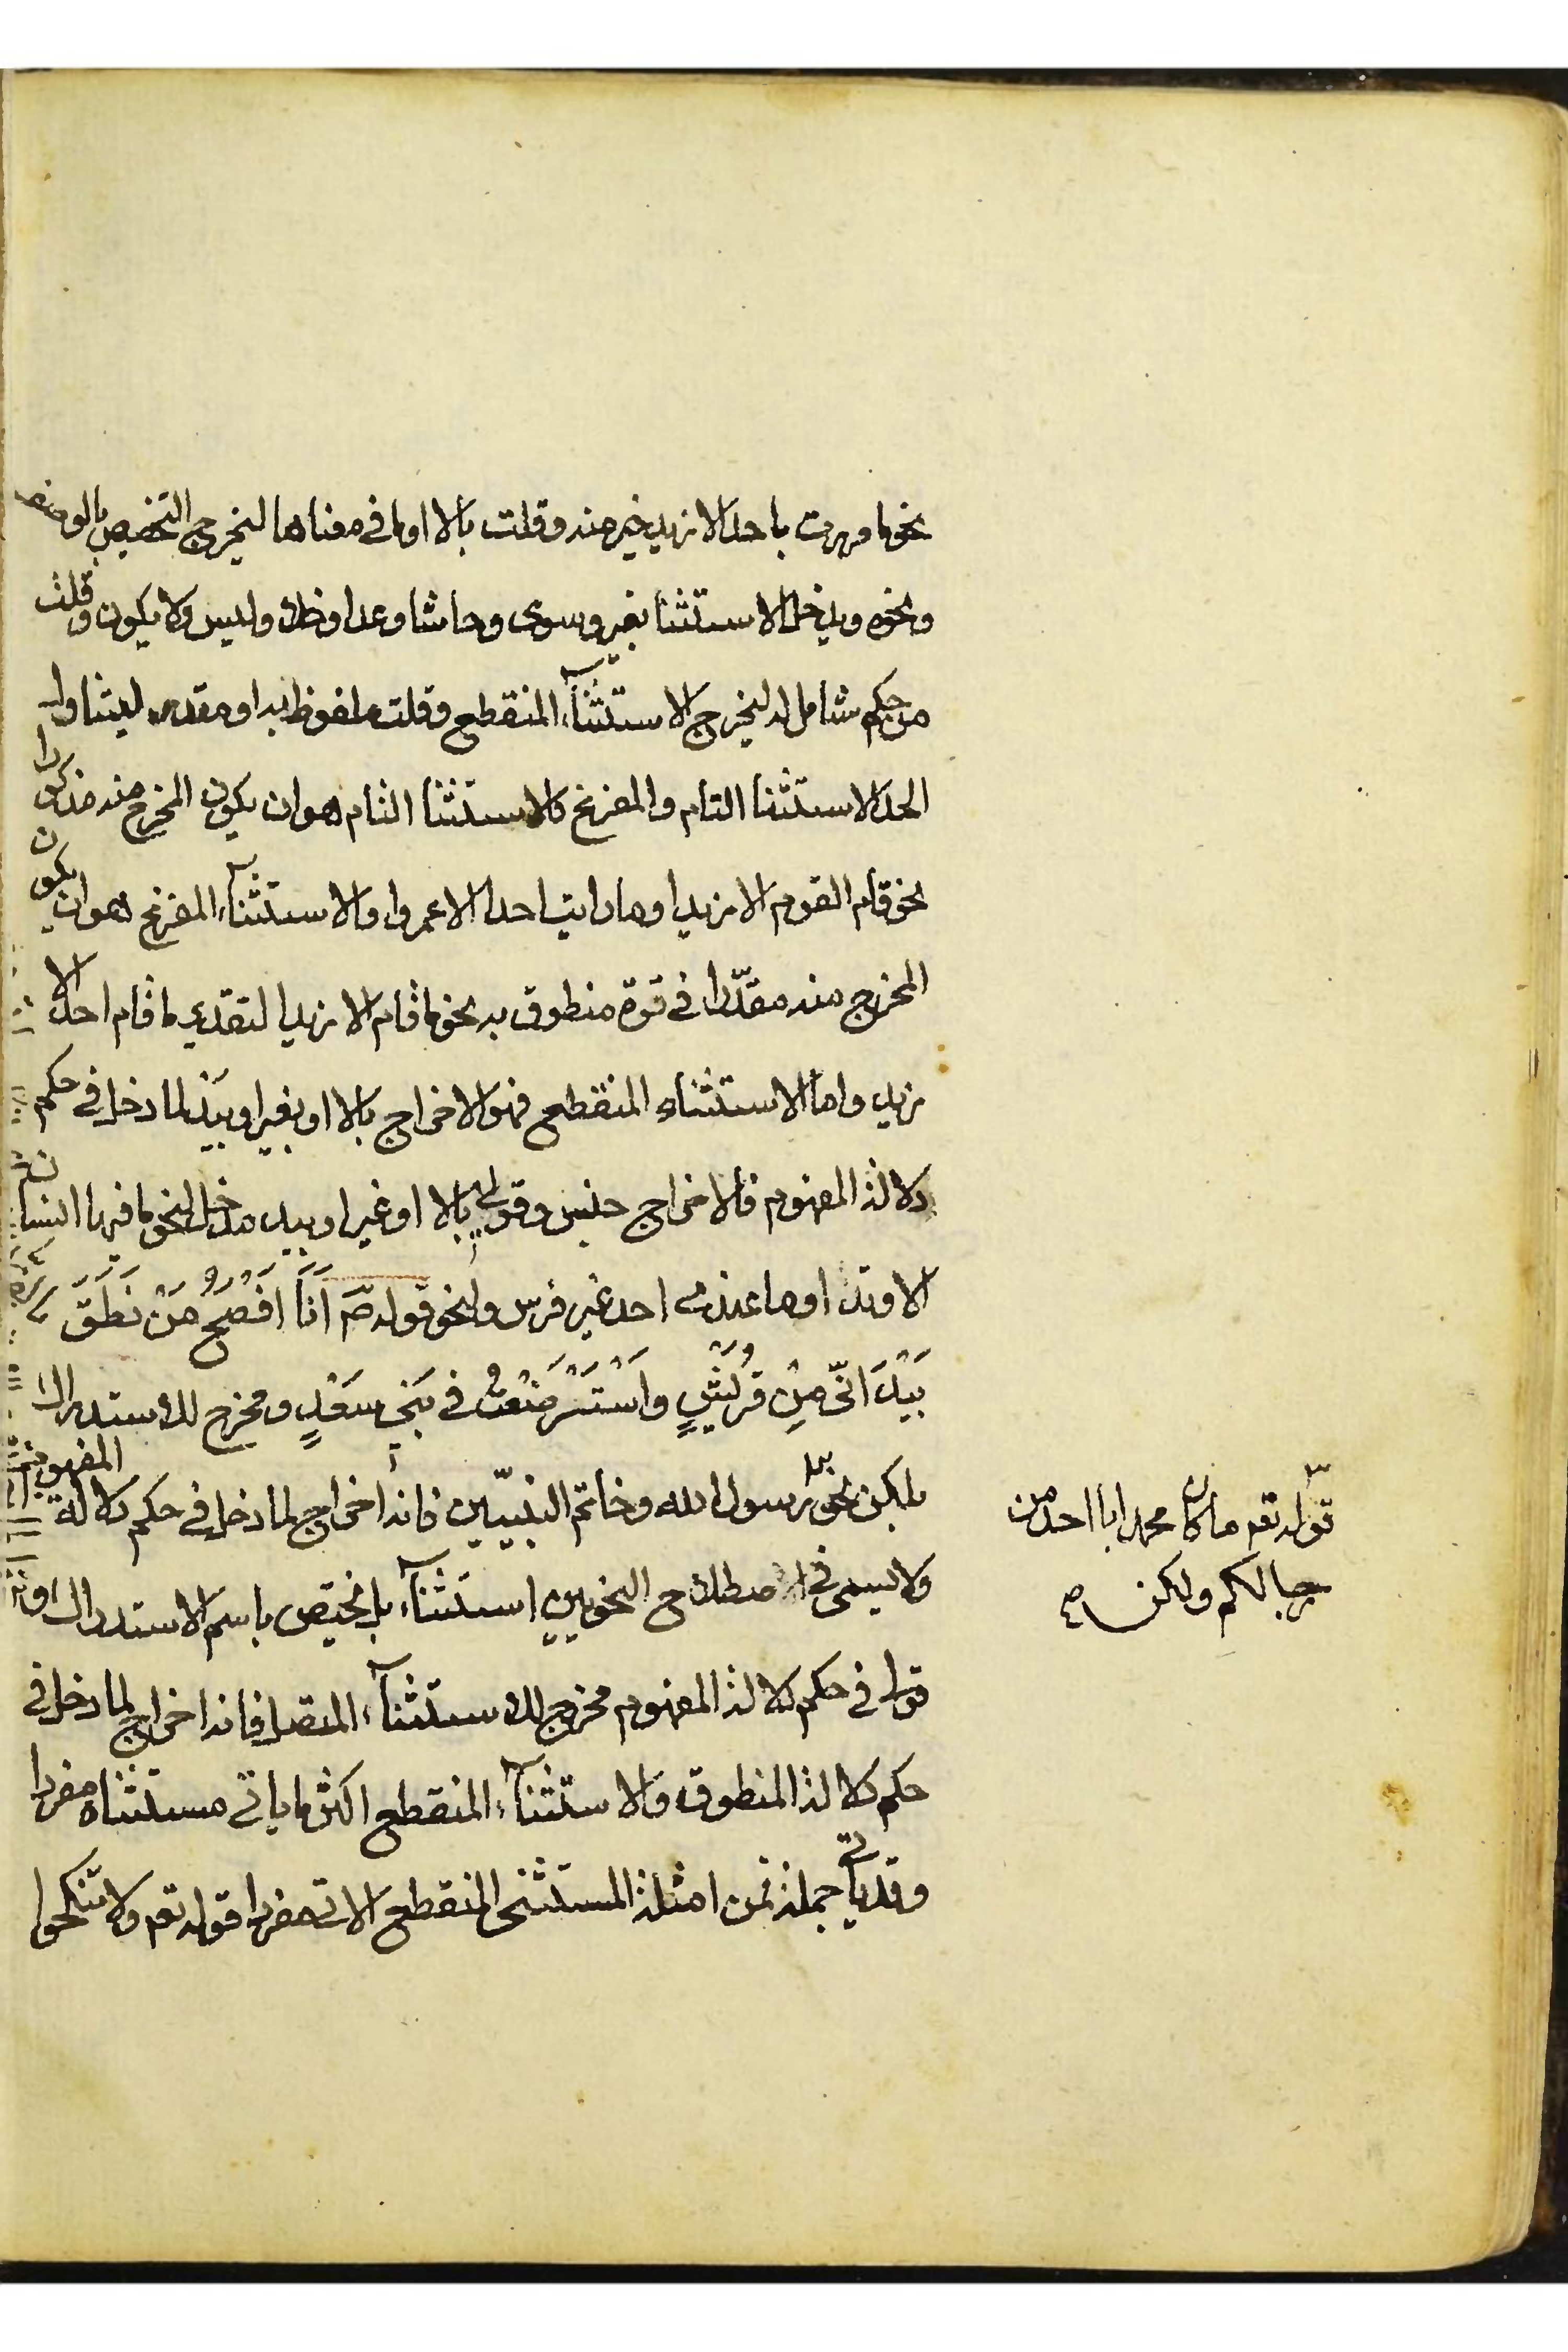 نحو ما مررت باحد الا زيد خير منه وقلت بالا او ما فى معناها ليخرج التخصيص بالوصف
ونحوه ويدخل الاستثنا بغير وسوى وحاشا وعدا وخلا وليس ولا يكون وقلت
من حكم شامل له ليخرج الاستثنآء المنقطع وقلت ملفوظ به او مقدر ليتناول
الحد الاستثنا التام والمفرغ فالاستثنا التام هو ان يكون المخرج منه مذكورا
نحو قام القوم الا زيدا وما رايت احدا الا عمروا والاستثنآء المفرغ هو ان يكون
المخرج منه مقدّرا فى قوة منطوق به نحو ما قام الا زيدا لتقدير ما قام احد الا
زيد واما الاستثناء المنقطع فهو الاخراج بالا او بغير او بَيْدَ لما دخل فى حكم
دلالة المفهوم فالاخراج جنس وقولى بالا او غير او بيد مدخل لنحو ما فيها انسان
الا وتد او ما عندى احد غير فرس ولنحو قوله صَم اَنَا اَفْصَحُ مَنْ نَطَقَ
بَيْدَ انّى مِنْ قُرَيْشٍ واَسْتَرْضَعْتُ فى بَنِى سَعْدٍ ومخرج للاستدراك
بلكن نحو رسول الله وخاتم النبيّين فانه اخراج لما دخل فى حكم دلالة المفهوم
ولا يسمى فى اصطلاح النحويين استثنآء بل يختص باسم الاستدراك
قولى فى حكم دلالة المفهوم مخرج للاستثنآء المتصل فانه اخراج لما دخل فى
حكم دلالة المنطوق والاستثنآء المنقطع اكثر ما ياتى مستثناه مفردا
وقد ياتى جملة فمن امثلة المستثنى المنقطع الاتى مفردا قوله تعم ولا تنكحوا
قوله تعم ما كان محمد ابا احد من
رجالكم ولكن صح